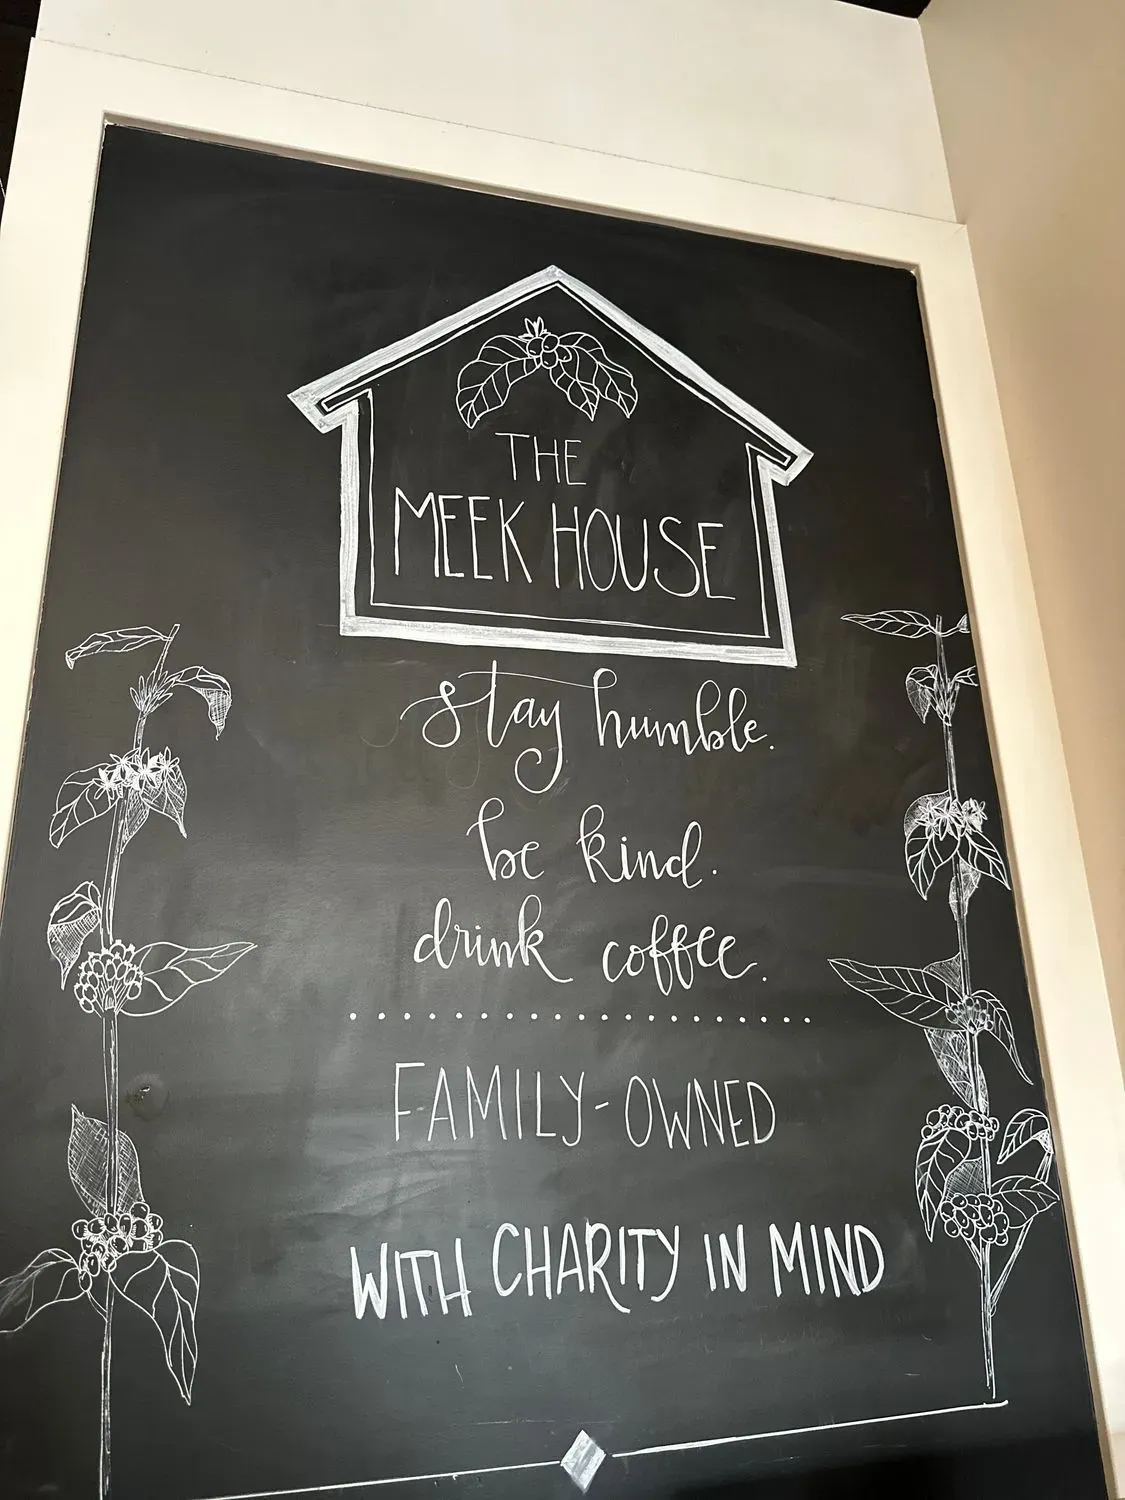 THE
MEEK HOUSE
stay humble.
be kind.
drink coffee.
FAMILY-OWNED
WITH CHARITY IN MIND